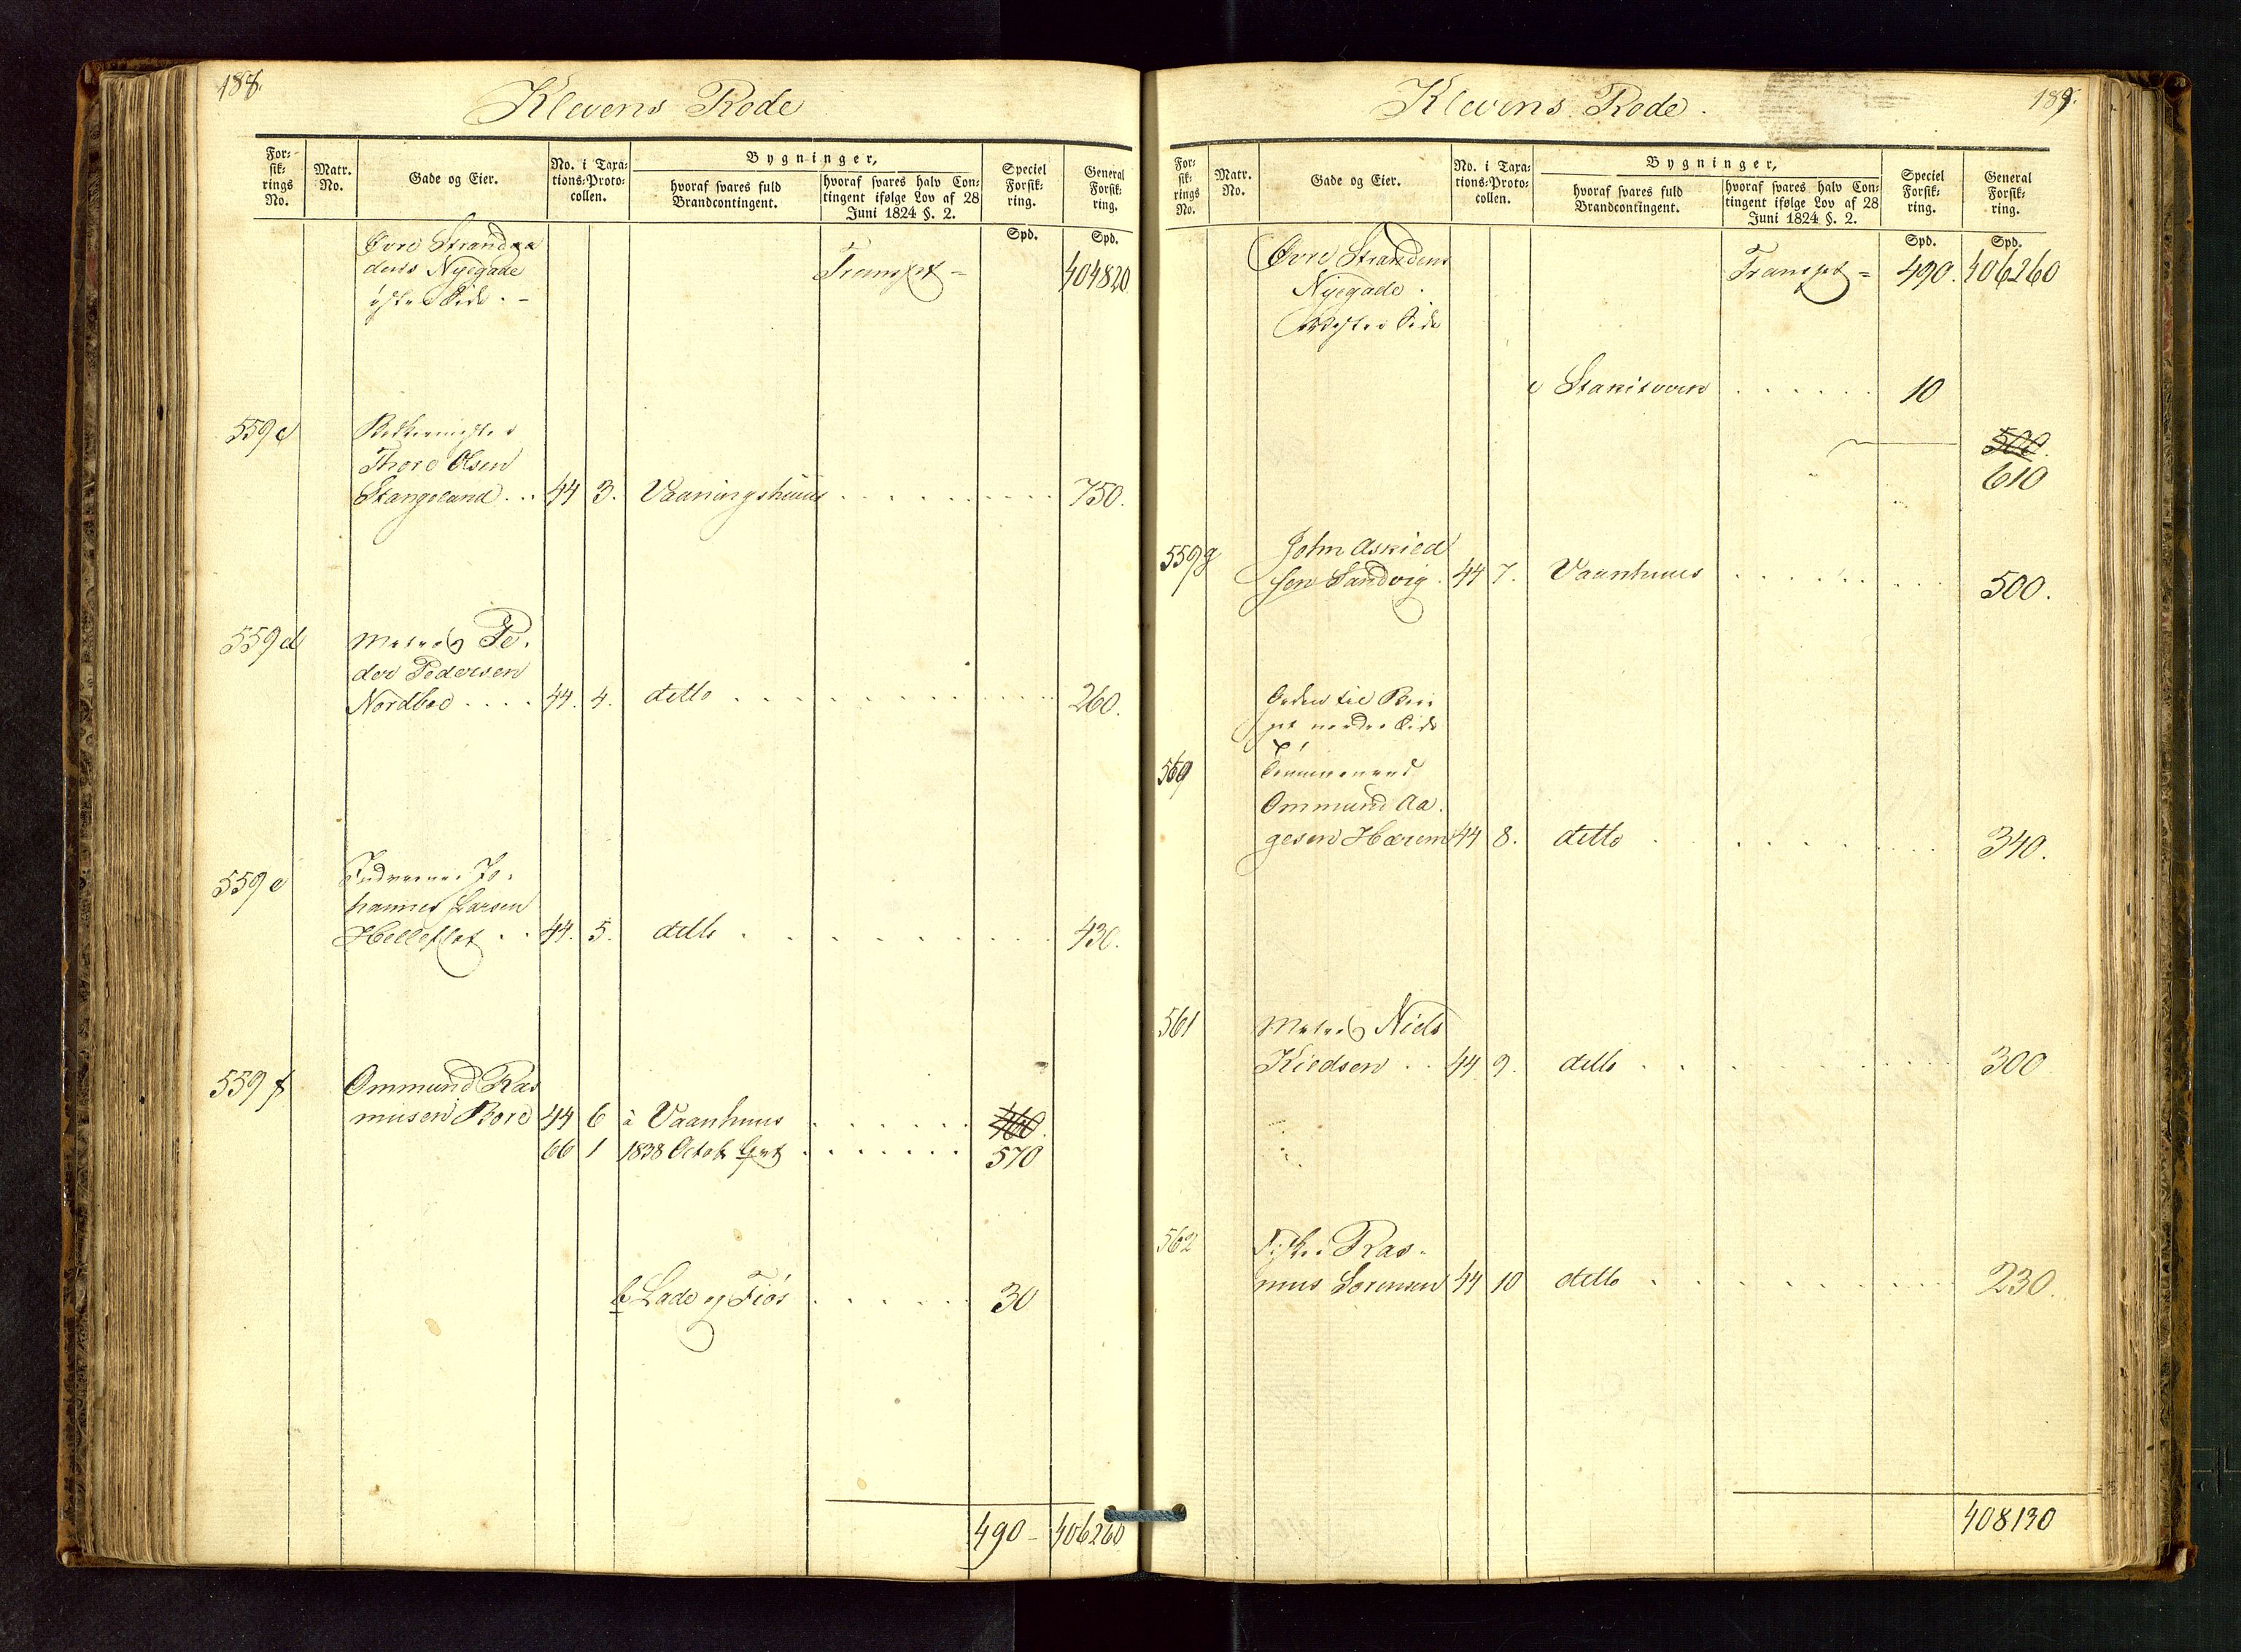 188.
Klevens Rode
For-
sik-
rings
No.
Matr.
No.
Gade og Eier.
No. i Taxa-
tions-Proto-
collen.
Bygninger,
hvoraf svares fuld
Brandcontingent.
hvoraf svares halv Con-
tingent ifølge Lov af 28
Juni 1824 §. 2.
Speciel
Forsik-
ring.
General
Forsik-
ring.
Spd.
Spd.
Øvre Strandga
dens Nyegade
østre Side. -
Transpt =
404820
559 c
Thore Olsen
Stangeland . . 44 3. Vaaningshuus . . . . . 750.
559 d Matros Pe-
der Pedersen
Nordboe . . . . 44. 4. ditto . . . . . 260.
559 e Jo-
hannes Larsen
Helleflot . . 44. 5. ditto . . . . . 430.
559 f Ommund Ras
musen Bore 44 6 a Vaanhuus . . . . . 460.
66 1 1838 Octob. . . . . . 570
b Lade og Fiøs . . . . . 30
490 - 406260
189.
Klevens Rode.
For-
sik-
rings
No.
Matr.
No.
Gade og Eier.
No. i Taxa-
tions-Proto-
collen.
Bygninger,
hvoraf svares fuld
Brandcontingent.
hvoraf svares halv Con-
tingent ifølge Lov af 28
Juni 1824 §. 2.
Speciel
Forsik-
ring.
General
Forsik-
ring.
Spd.
Spd.
Øvre Strandens
Nyegade.
Vestre Side
Transpt = 490. 406260
c Stakitverk . . . . . 10
500.
610
559 g John Askied
sen Sandvig . 44 7. Vaanhuus . . . . . 500.
nordre Side
560 Tømmermand
Ommund Aa-
gesen Harem 44 8. ditto . . . . . 340.
561 Matros Niels
Kieldsen . . 44 9. ditto . . . . . 300
562 Fisker Ras-
mus Sørensen 44 10 ditto . . . . . 230.
408130